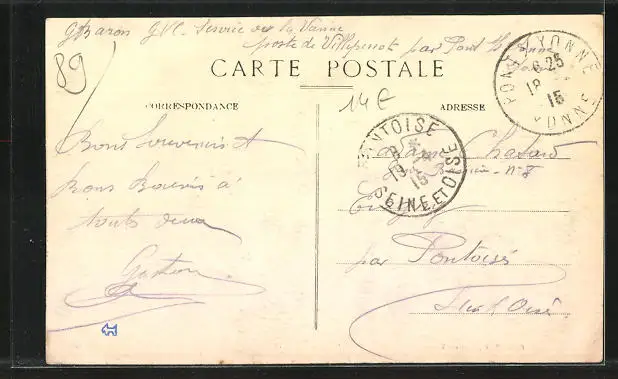 G Baron G.V.C. Service de la Vanne
poste de Villeperrot par Pont s/ Yonne
Yonne
89
CARTE POSTALE
14 €
CORRESPONDANCE
ADRESSE
PONT S YONNE
6 25
18
15
YONNE
PONTOISE
19
15
SEINE ET OISE
Bons Souvenirs et
bons baisers à
touts deux
Gaston
Madame Chabard
n° 8
par Pontoise
Seine et Oise